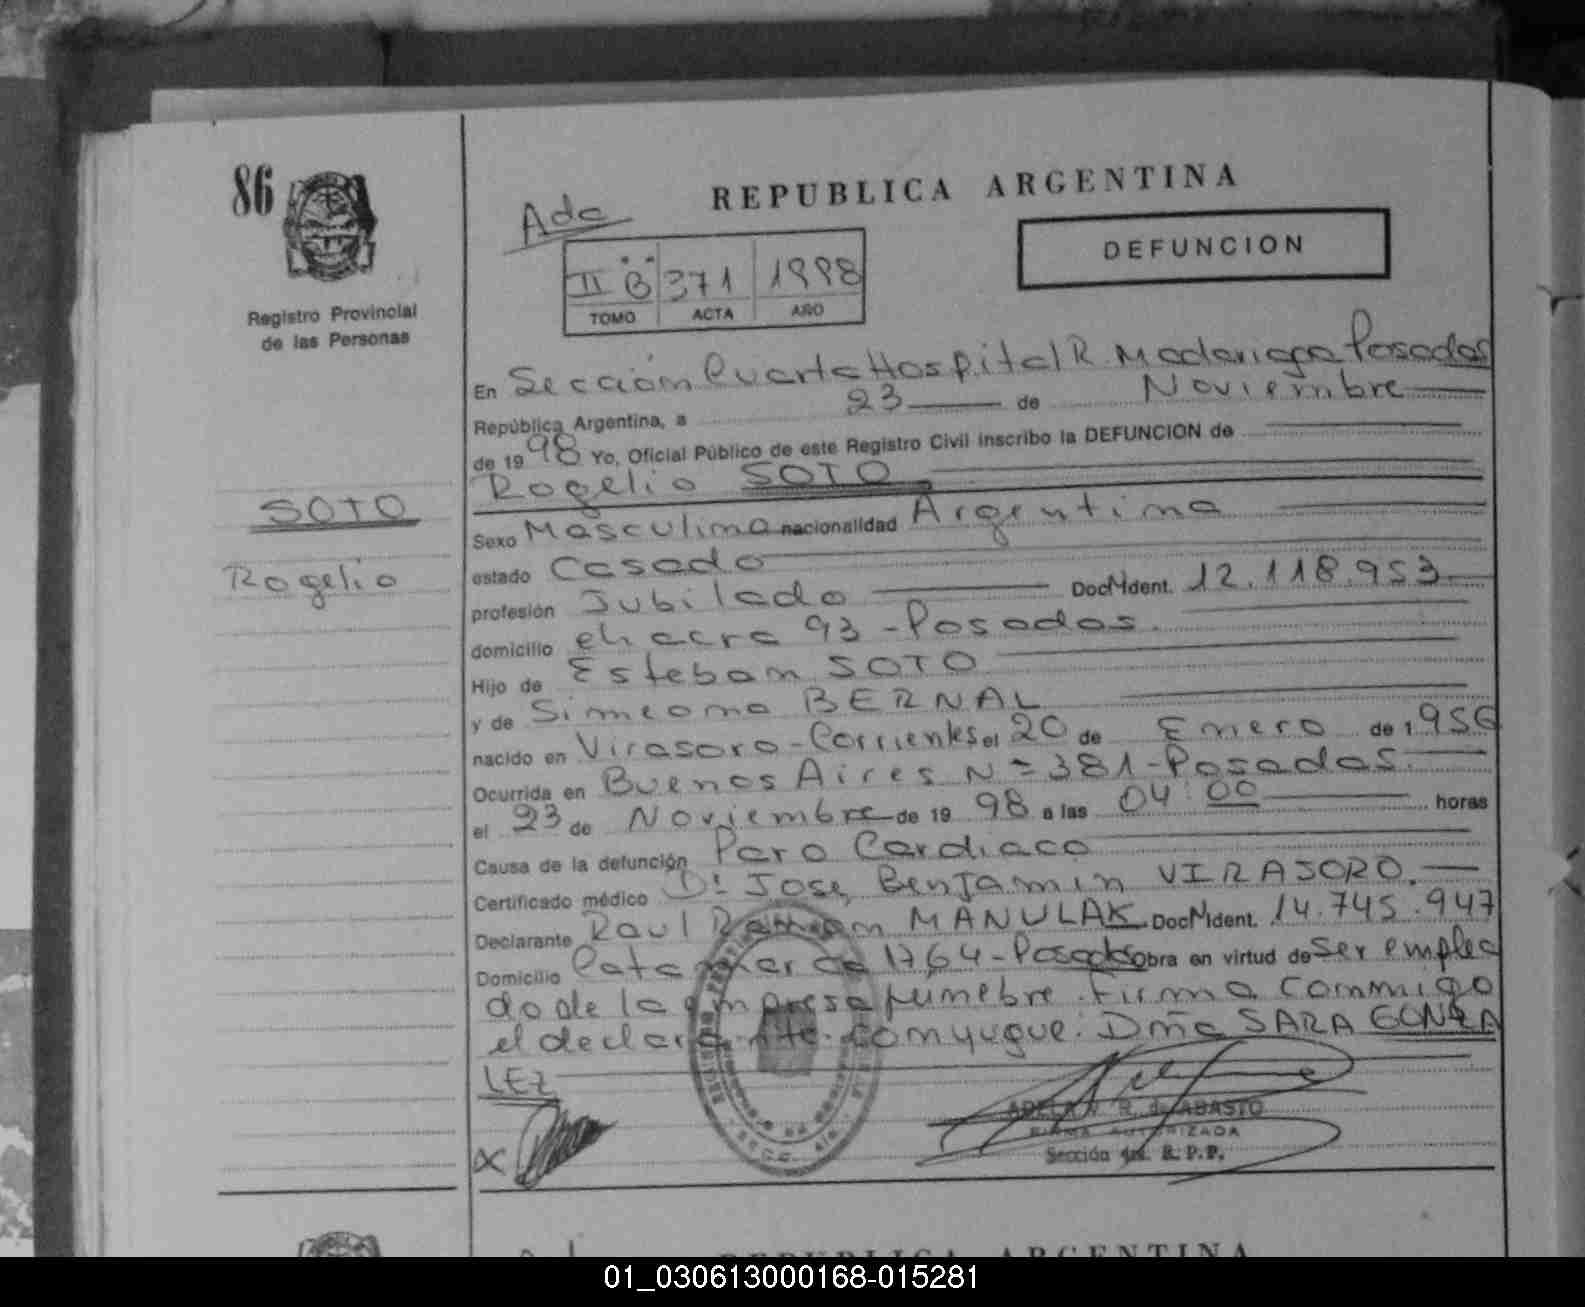 86
Registro Provincial
de las Personas
SOTO
Rogelio
REPUBLICA ARGENTINA
Ada
DEFUNCION
II B 371 1998
TOMO ACTA AÑO
En Sección Cuarta Hospital R. Madariaga Posadas
República Argentina, a 23 de Noviembre
de 1998 Yo, Oficial Público de este Registro Civil inscribo la DEFUNCION de
Rogelio SOTO
Sexo Masculino nacionalidad Argentina
estado Casado
profesión Jubilado Doc. Ident. 12.118.953
domicilio chacra 93 - Posadas.
Hijo de Esteban SOTO
y de Simeona BERNAL
nacido en Virasoro - Corrientes el 20 de Enero de 1956
Ocurrida en Buenos Aires N = 381 - Posadas.
el 23 de Noviembre de 19 98 a las 04:00 horas
Causa de la defunción Paro Cardiaco
Certificado médico Dr Jose Benjamin VIRASORO.
Declarante Raul Ramon MANULAK Doc. Ident. 14.745.947
Domicilio Catamarca 1764 - Posadas obra en virtud de ser emplea
do de la empresa fúnebre. Firma conmigo
el declarante. Conyugue: Dña SARA GONZA
LEZ
X
ADELA V. R. de ABASTO
FIRMA AUTORIZADA
Sección 4ta. R. P. P.
REPUBLICA ARGENTINA
01_030613000168-015281